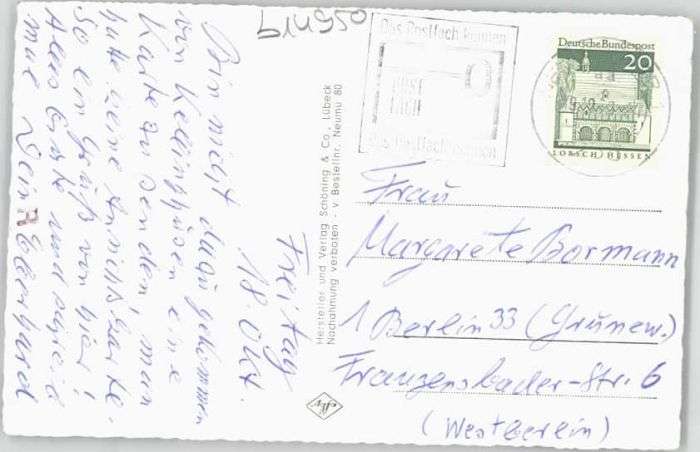 b14950
Das Postfach nennen
POST
FACH
das Postfach nennen
Deutsche Bundespost
20
LORSCH/HESSEN
Freitag
18. Okt.
Bin nicht dazu gekommen
von Kellinghusen eine
Karte zu senden, man
hatte keine Ansichtskarte.
So ein Gruß von hier!
Alles Gute und
mal Dein Eberhard
Hersteller und Verlag Schöning & Co., Lübeck
Nachahmung verboten v. Bestellnr. Neumü 80
Frau
Margarete Bormann
1 Berlin 33 (Grunew.)
Franzensbader-Str. 6
(Westberlin)